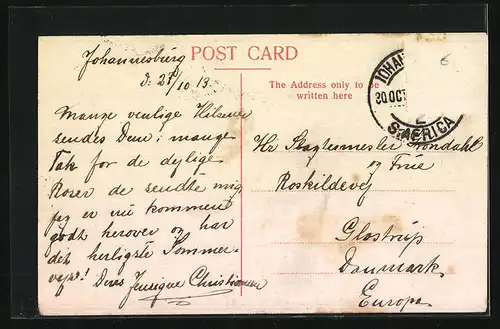 POST CARD
Johannesburg
d. 28/10 13
Mange venlige Hilsener
sendes Dem; mange
Tak for de dejlige
Roser de sendte mig
jeg er nu kommen
godt herover og har
det herligste Sommer-
vejr! Deres Christiansen
The Address only to be
written here
JOHAN
30 OCT
S.AFRICA
6
Hr Slagtermester Grøndahl
og Frue
Roskildevej
Glostrup
Danmark
Europa